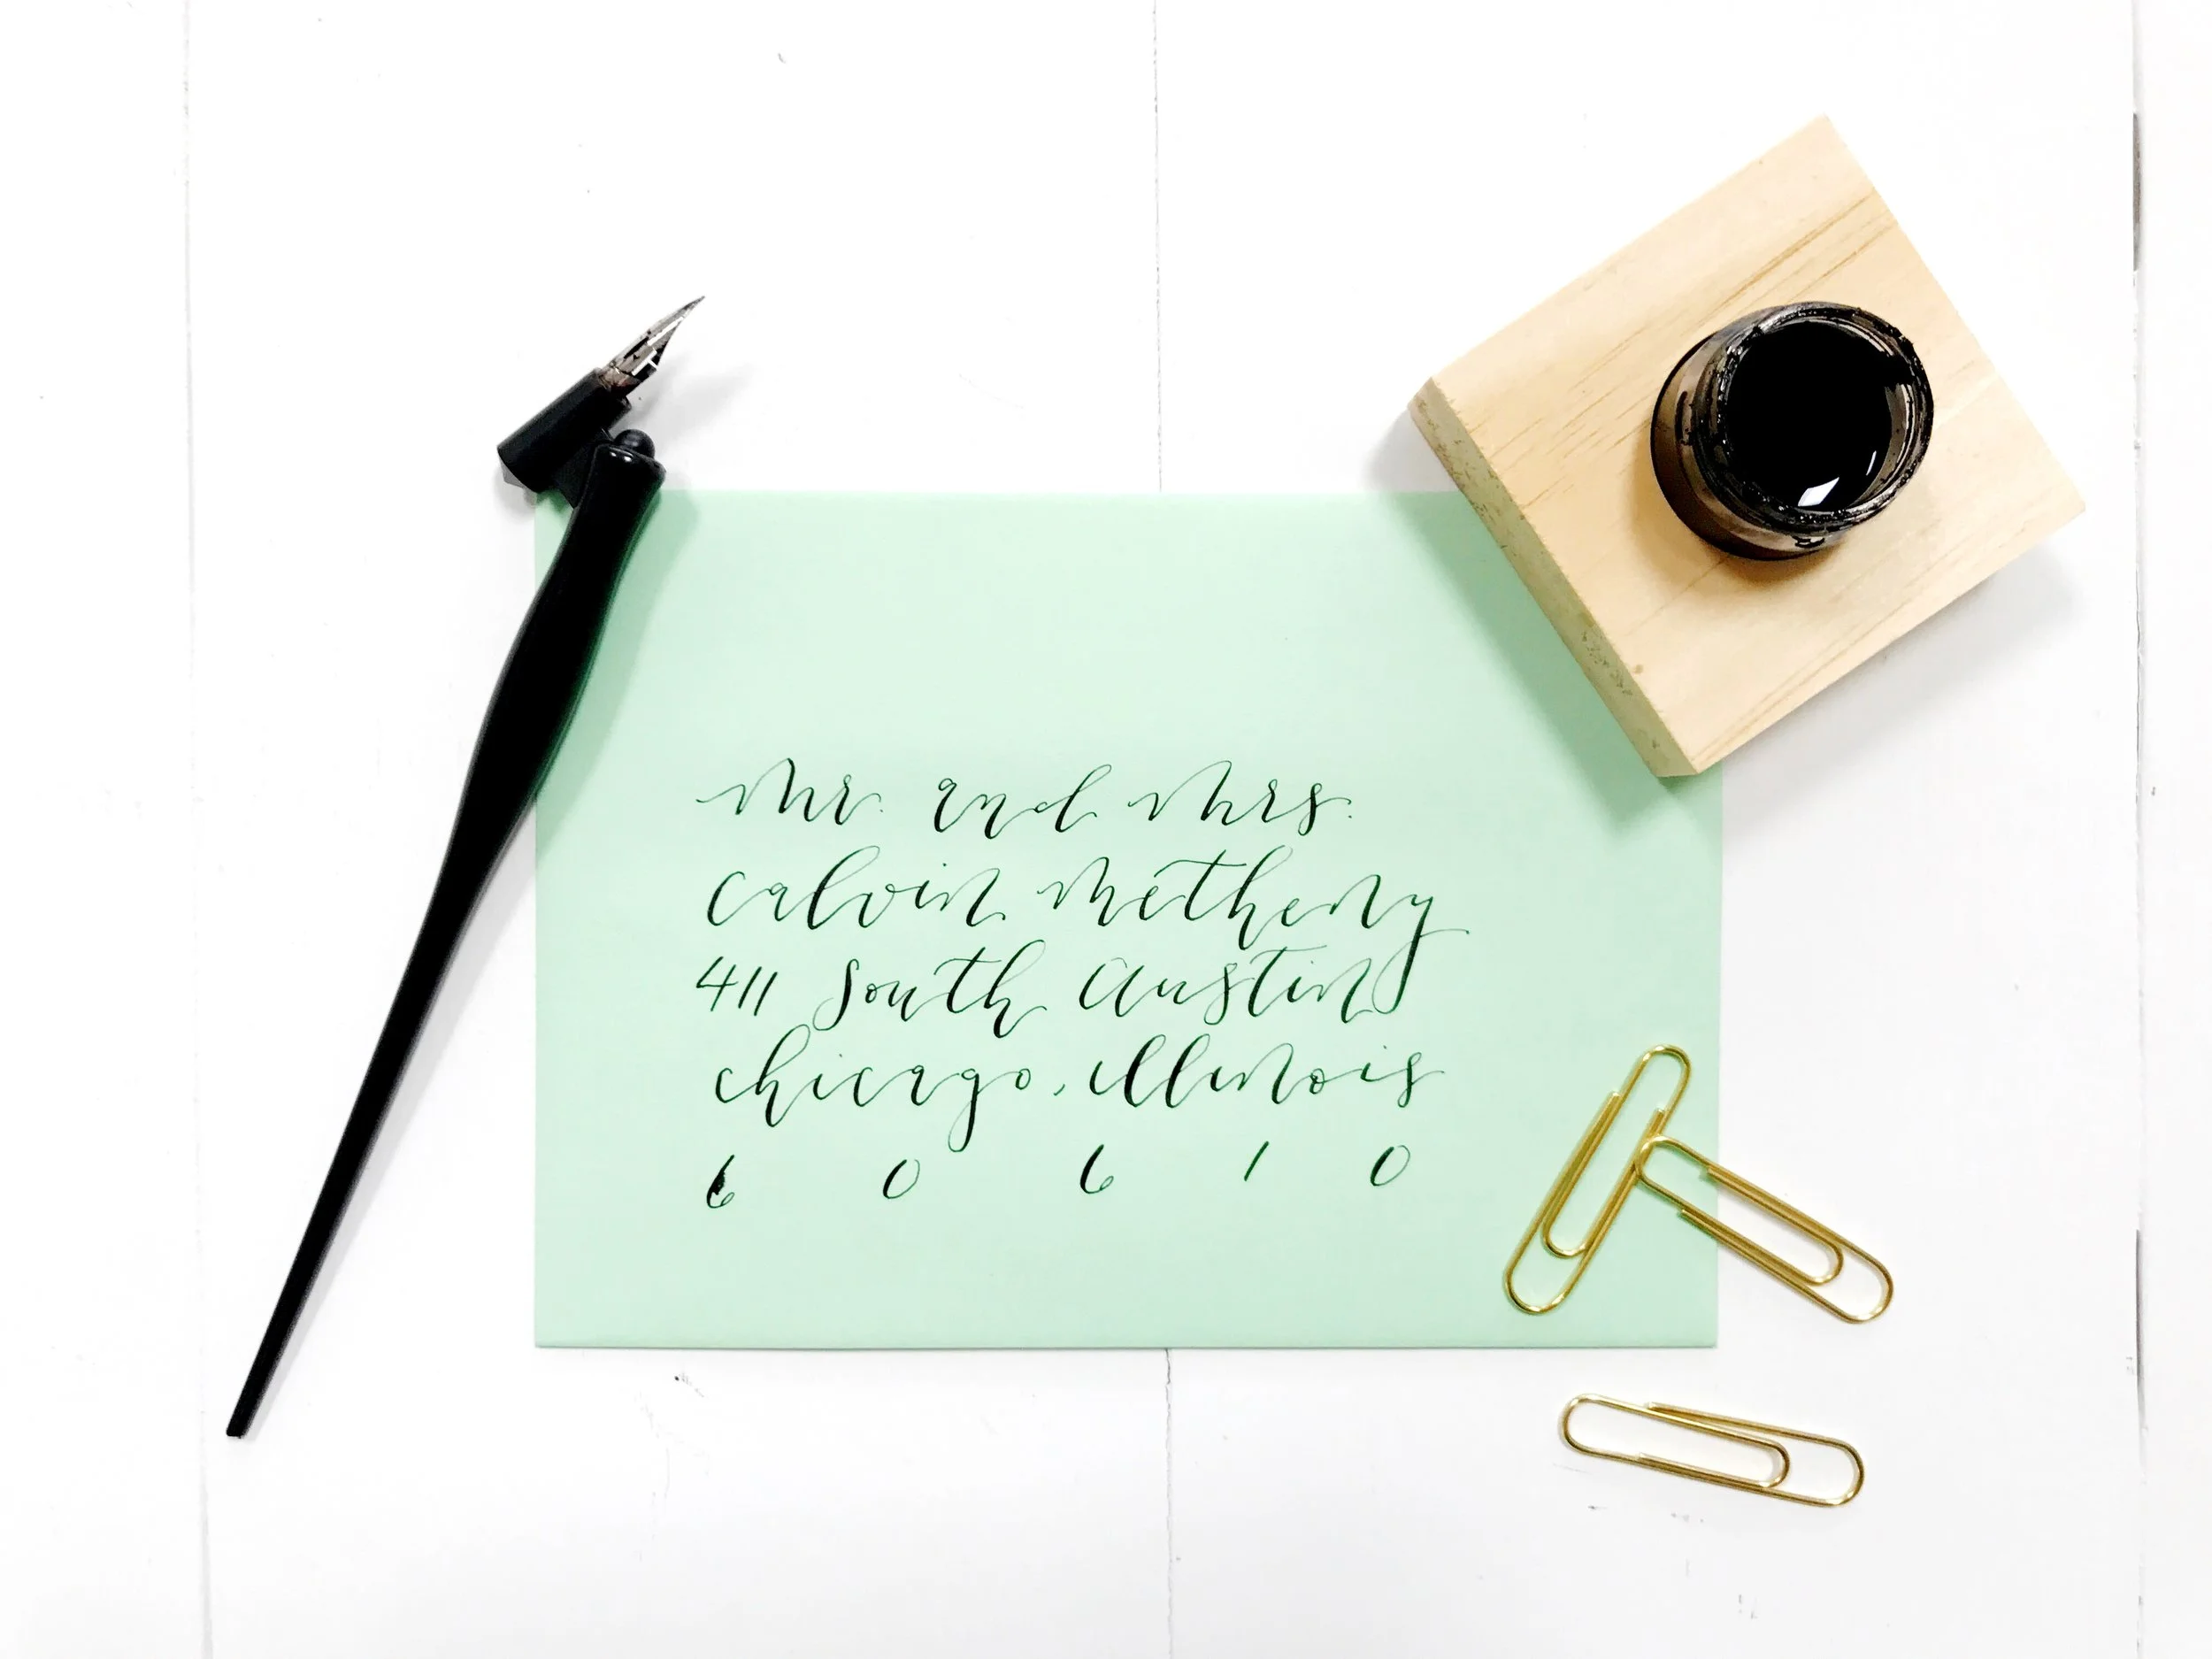 Mr. and Mrs.
Calvin Metheny
411 South Austin
Chicago, Illinois
6 0 6 1 0